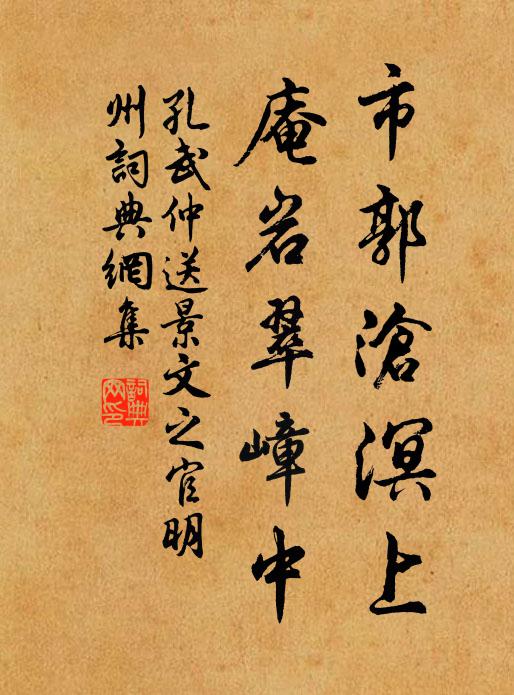 市郭滄溟上
庵岩翠嶂中
孔武仲送景文之官明
州詞典網集
詞典網印